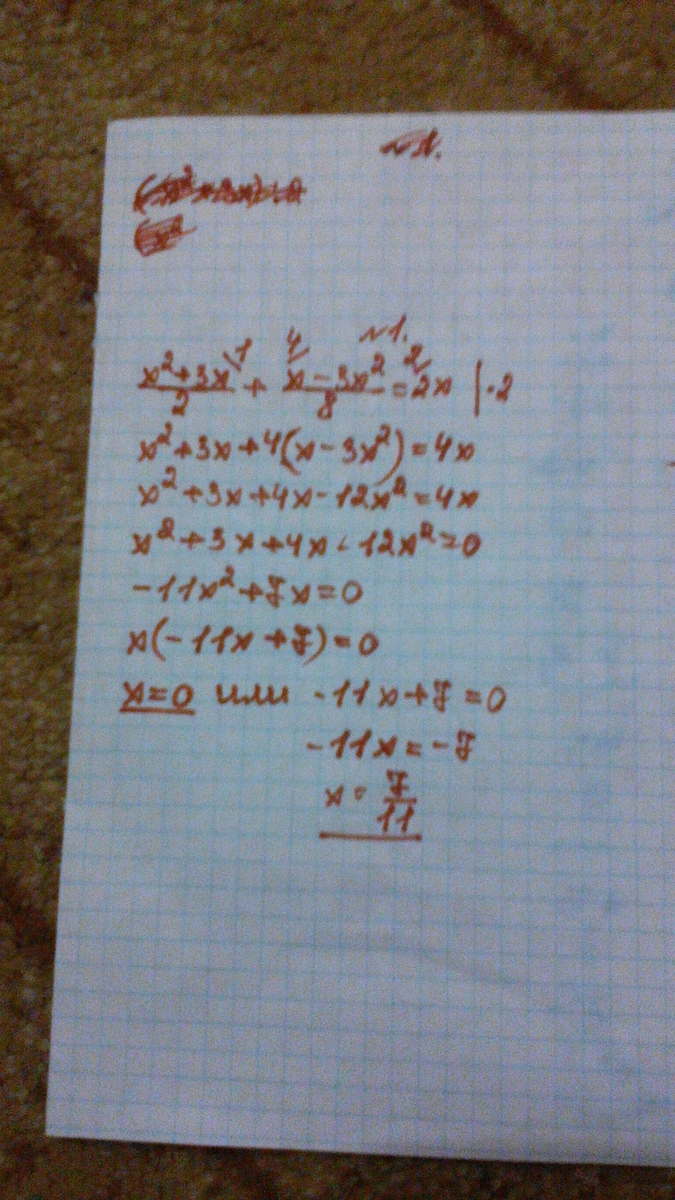 №1.
№1.
(x²+3x)/2 ⌵1 + 4/ (x-3x²)/8 = 2/ 2x | ·2
x²+3x+4(x-3x²)=4x
x²+3x+4x-12x²=4x
x²+3x+4x-12x²=0
-11x²+7x=0
x(-11x+7)=0
x=0 или -11x+7=0
-11x=-7
x=7/11